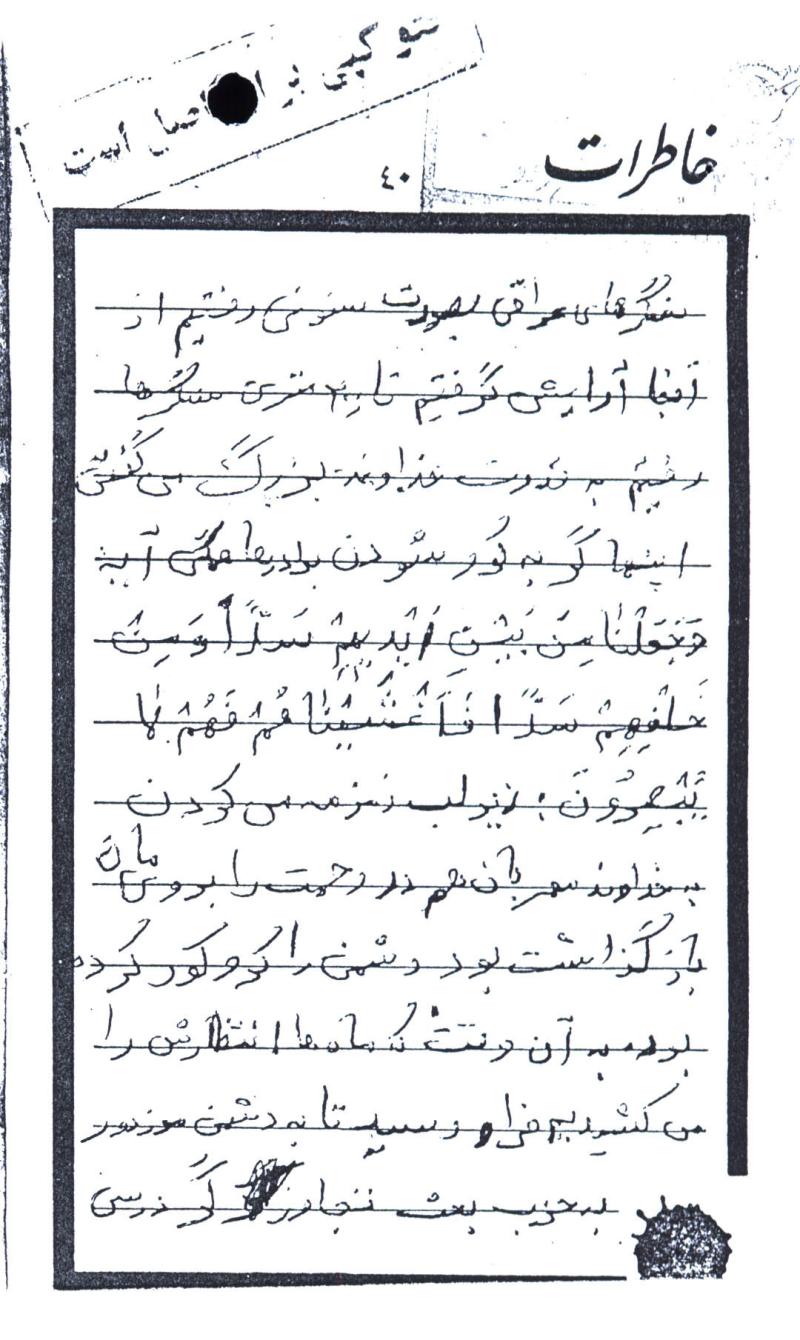 کپی برابر اصل است
خاطرات
٤٠
سنگرهای عراقی بصورت ستونی رفتیم از
آنجا آرایش گرفتیم تا متری سنگرها
رفتیم به قدرت خداوند بزرگ می گفتی
اینها کر به کور شودن برادرها همگی آیه
وَجَعَلْنَا مِنْ بَیْنِ اَیْدیهِمْ سَدّاً وَ مِنْ
خَلْفِهِمْ سَدّاً فَاَغْشَیْنَا هُمْ فَهُمْ لا
یُبْصِروُنَ زیر لب زمزمه می کردن
خداوند مهربان هم در رحمت را بروی مان
باز گذاشت بود دشمن را کر و کور کرده
بود به آن وقت که ماه ها انتظارش را
می کشیدیم فرا رسید تا به دشمن
به حزب بعث تجاوز گر درسی